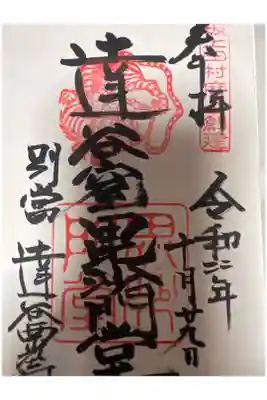 参拝
令和二年
十月廿九日
達谷窟毘沙門堂
別當
達谷西光寺